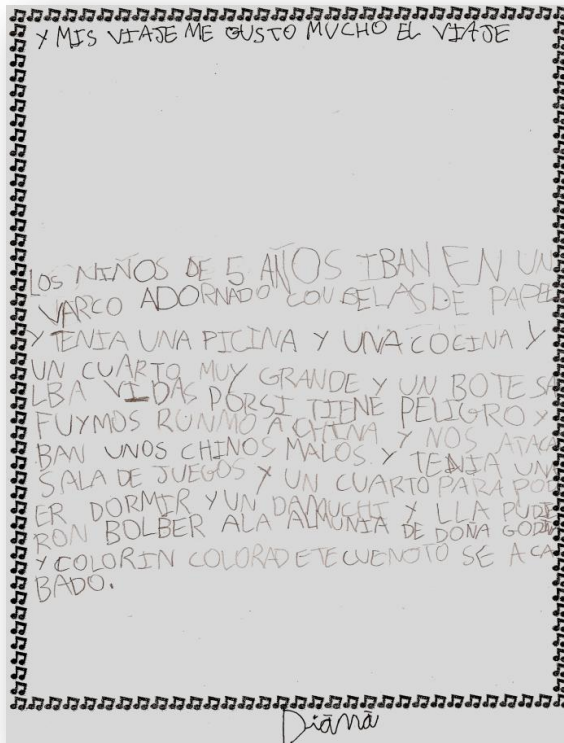 Y MIS VIAJE ME GUSTO MUCHO EL VIAJE
LOS NIÑOS DE 5 AÑOS IBAN EN UN
VARCO ADORNADO COU BELAS DE PAPEL
Y TENIA UNA PICINA Y UNA COCINA Y
UN CUARTO MUY GRANDE Y UN BOTE SA
LBA VIDAS PORSI TIENE PELIGRO Y
FUYMOS RUNMO A CHINA Y NOS ATACA
BAN UNOS CHINOS MALOS Y TENIA UNA
SALA DE JUEGOS Y UN CUARTO PARA POD
ER DORMIR Y UN Y LLA PUDIE
RON BOLBER ALA ALMUNIA DE DOÑA GODINA
Y COLORIN COLORAD ETE CUENOTO SE A CA
BADO.
Diana